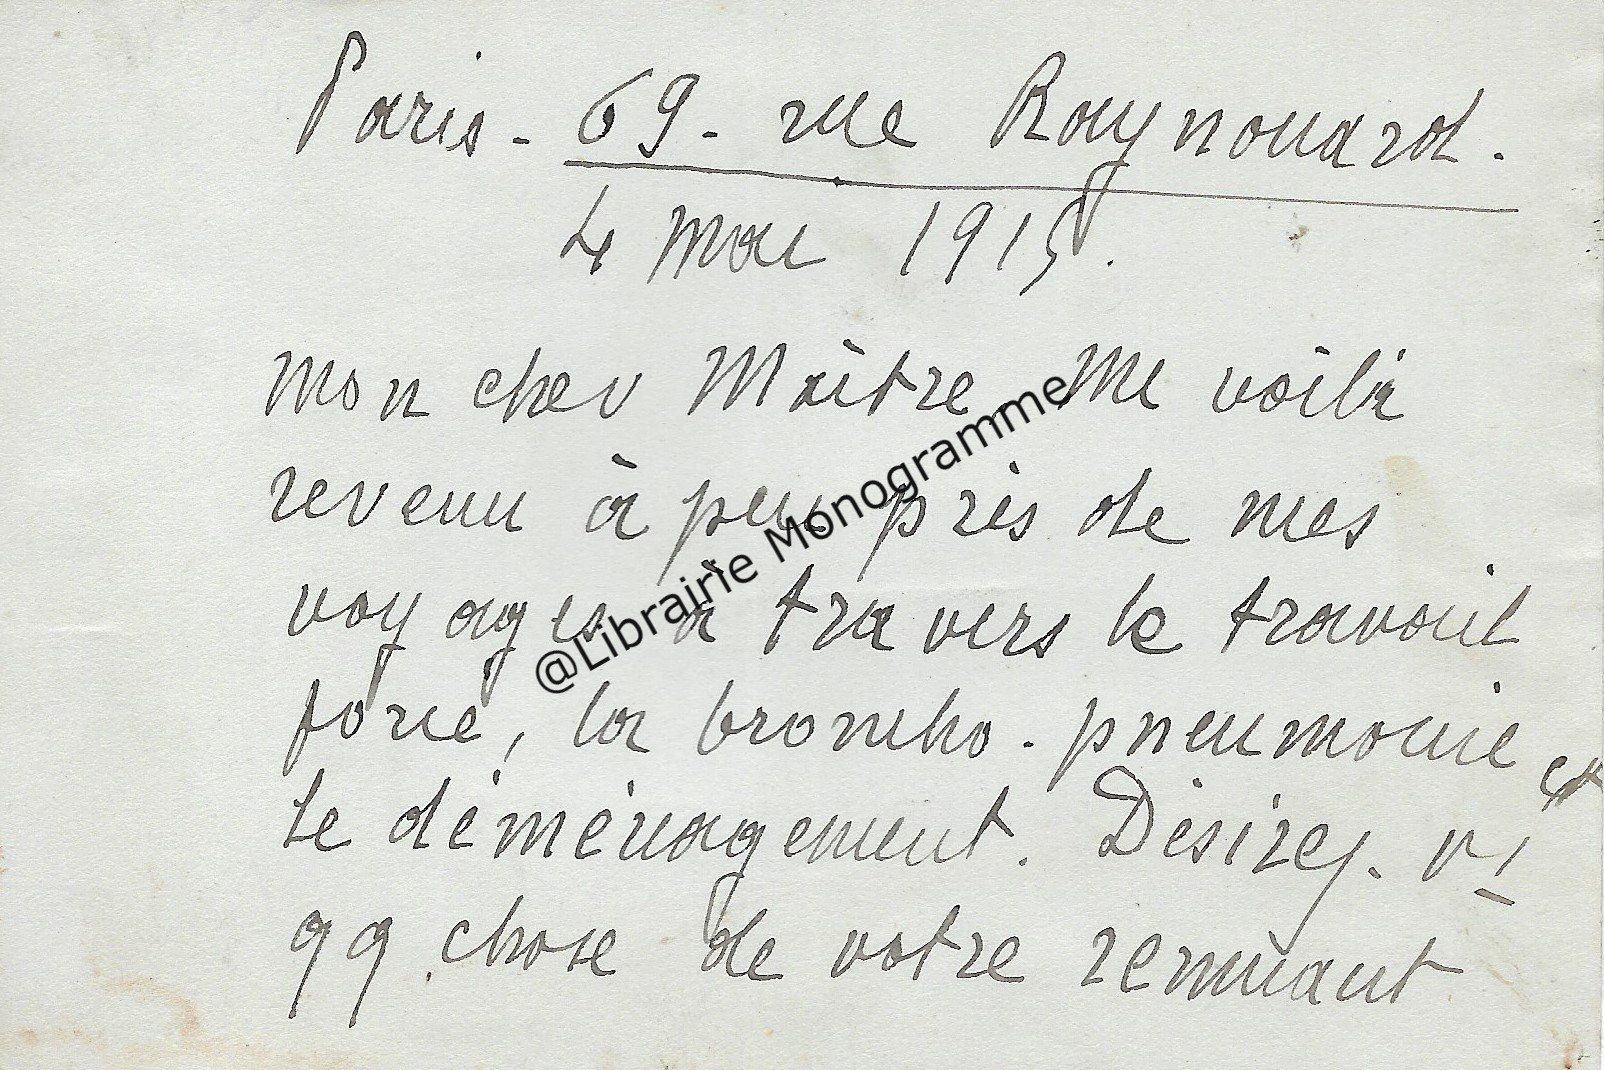 Paris - 69. rue Raynouard.
4 mai 1915.
Mon cher Maître, Me voilà
revenu à peu près de mes
voyages à travers le travail
forcé, la broncho-pneumonie et
le déménagement. Désirez-vs
qq chose de votre remuant
@Librairie Monogramme